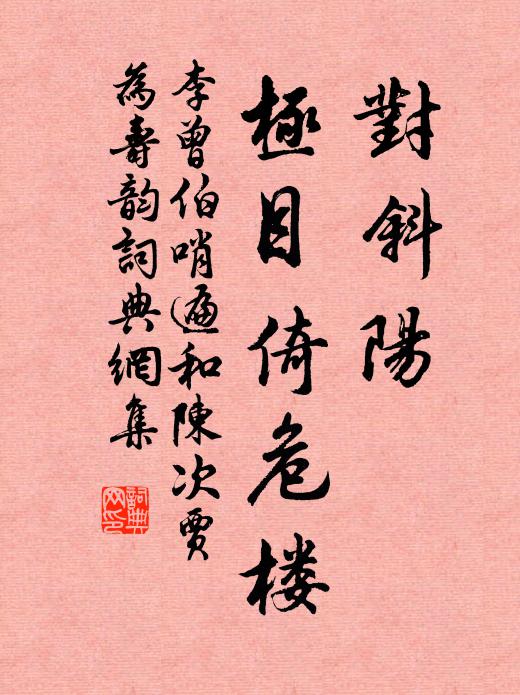 對斜陽
極目倚危楼
李曾伯哨遍和陳次賈
為壽韵詞典網集
詞典网印